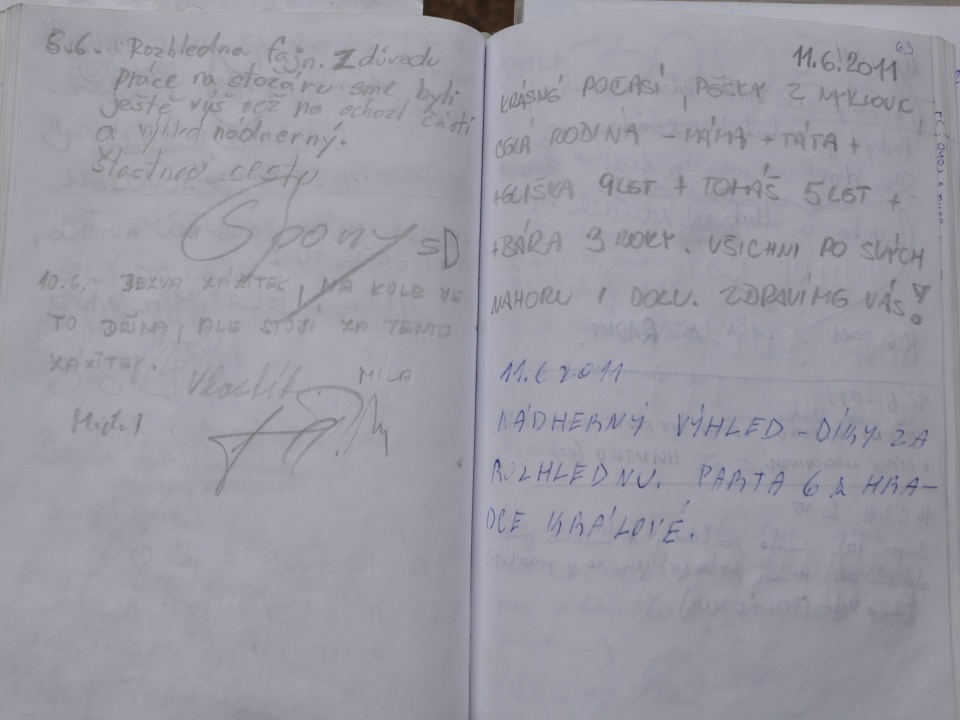 8.6. Rozhledna fajn. Z důvodu
práce na stožáru sme byli
ještě výš než na ochozí části
a výhled nádnerný.
Šťastneu cestu
Spony SD
10.6. - BEZVA ZÁŽITEK, NA KOLE JE
TO DŘINA, ALE STOJÍ ZA TENTO
ZÁŽITEK.
Vlastík MÍLA
63
11.6.2011
KRÁSNÉ POČASÍ, PĚŠKY Z
CELÁ RODINA - MÁMA + TÁTA +
+ELIŠKA 9LET + TOMÁŠ 5LET +
+BÁRA 3 ROKY. VŠICHNI PO SVÝCH
NAHORU I DOLU. ZDRAVÍME VÁS!
11.6 2011
NÁDHERNÝ VÝHLED - DÍKY ZA
ROZHLEDNU. PARTA 6 Z HRA-
DCE KRÁLOVÉ.